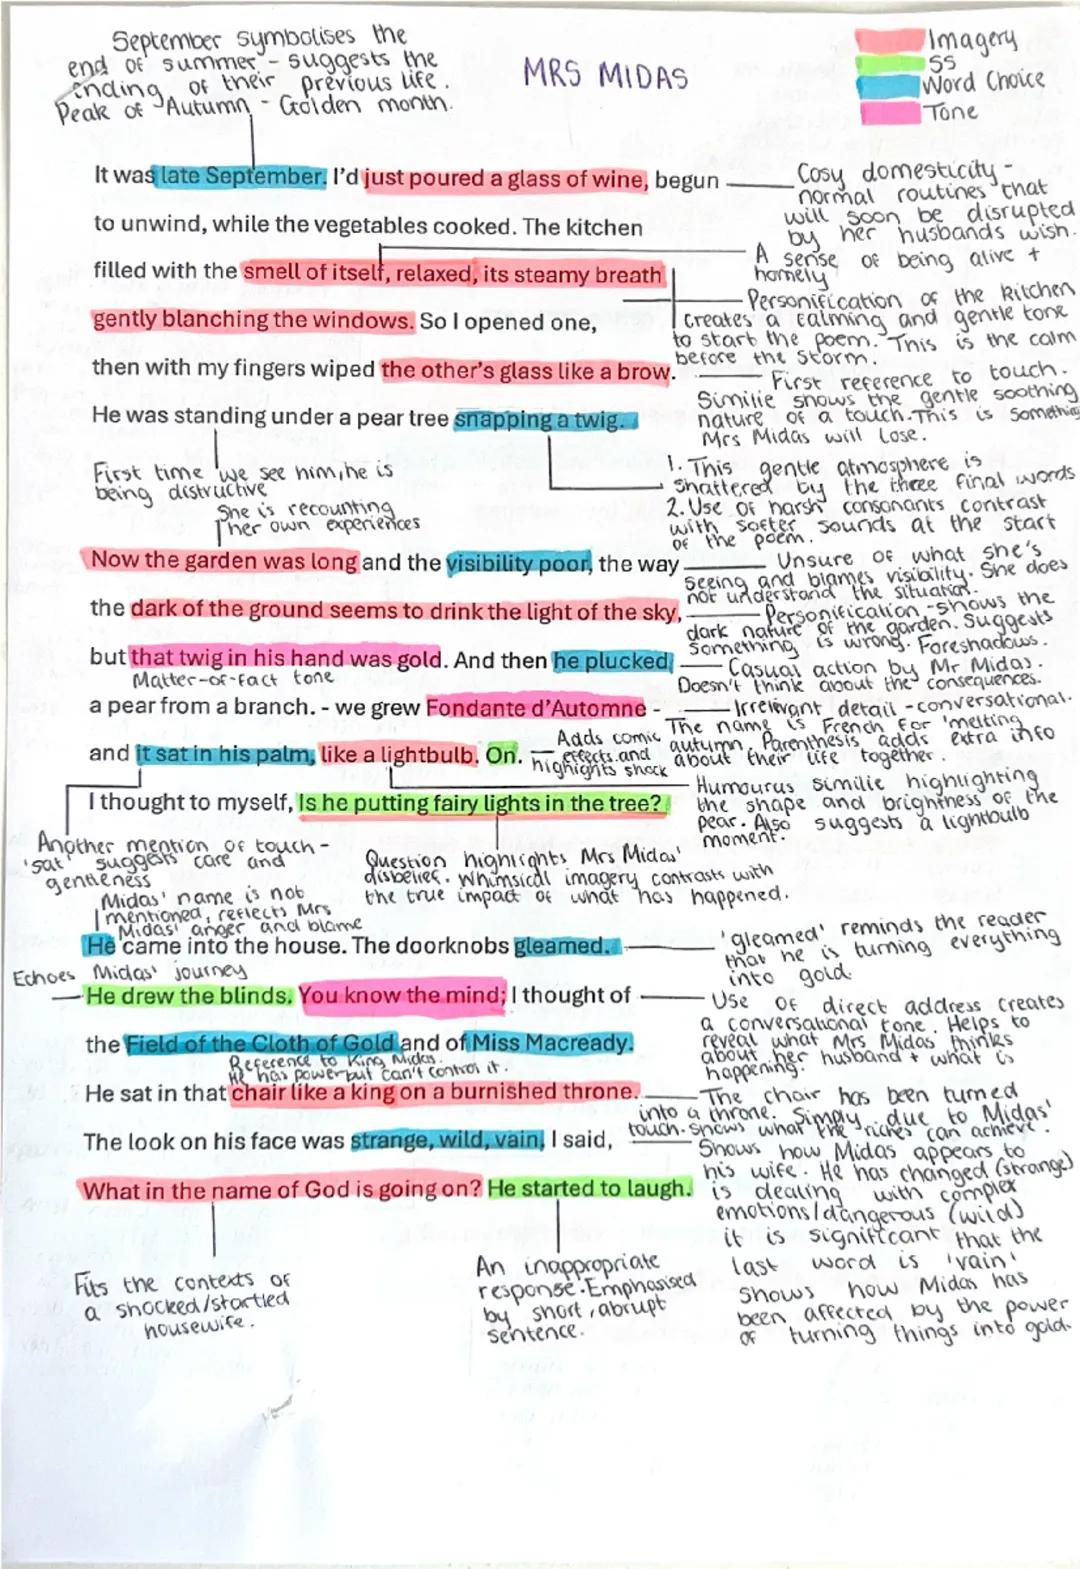 September symbolises the
end of summer - suggests the
ending of their previous life.
Peak of Autumn - Golden month.
MRS MIDAS
Imagery
SS
Word Choice
Tone
It was late September. I'd just poured a glass of wine, begun
Cosy domesticity -
normal routines that
will soon be disrupted
by her husbands wish.
to unwind, while the vegetables cooked. The kitchen
A sense of being alive +
homely
filled with the smell of itself, relaxed, its steamy breath
Personification of the kitchen
creates a calming and gentle tone
to start the poem. This is the calm
before the storm.
gently blanching the windows. So I opened one,
then with my fingers wiped the other's glass like a brow.
First reference to touch.
Similie shows the gentle soothing
nature of a touch. This is somethin
Mrs Midas will lose.
He was standing under a pear tree snapping a twig.
First time we see him, he is
being distructive
1. This gentle atmosphere is
shattered by the three final words
2. Use of harsh consonants contrast
with softer sounds at the start
of the poem.
She is recounting
her own experiences
Now the garden was long and the visibility poor, the way
Unsure of what she's
seeing and blames visibility. She does
not understand the situation.
the dark of the ground seems to drink the light of the sky,
Personification - shows the
dark nature of the garden. Suggests
something is wrong. Foreshadows.
but that twig in his hand was gold. And then he plucked
Matter-of-fact tone
Casual action by Mr Midas.
Doesn't think about the consequences.
a pear from a branch. - we grew Fondante d'Automne -
Irrelivant detail - conversational.
The name is French for 'melting
autumn. Parenthesis adds extra info
about their life together.
and it sat in his palm, like a lightbulb. On.
Adds comic
effects and
highights shock
I thought to myself, Is he putting fairy lights in the tree?
Humourus similie highlighting
the shape and brightness of the
pear. Also suggests a lightbulb
moment.
Another mention of touch -
'sat' suggests care and
gentleness
Question highlights Mrs Midas'
disbelief. Whimsical imagery contrasts with
the true impact of what has happened.
Midas' name is not
mentioned, reflects Mrs
Midas' anger and blame
He came into the house. The doorknobs gleamed.
'gleamed' reminds the reader
that he is turning everything
into gold.
Echoes Midas' journey
He drew the blinds. You know the mind; I thought of
Use of direct address creates
a conversational tone. Helps to
reveal what Mrs Midas thinks
about her husband + what is
happening.
the Field of the Cloth of Gold and of Miss Macready.
Reference to King Midas.
He has power but can't control it.
He sat in that chair like a king on a burnished throne.
The chair has been turned
into a throne. Simply due to Midas'
touch. Shows what the riches can achieve.
The look on his face was strange, wild, vain, I said,
Shows how Midas appears to
his wife. He has changed (strange)
is dealing with complex
emotions/dangerous (wild)
it is significant that the
last word is 'vain'
Shows how Midas has
been affected by the power
of turning things into gold.
What in the name of God is going on? He started to laugh.
Fits the contexts of
a shocked/startled
housewife.
An inappropriate
response. Emphasised
by short, abrupt
sentence.